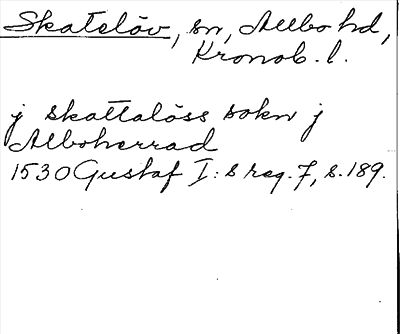 Skatelöv, sn, Allbo hd,
Kronob. l.
j skattalöss sokn j
Alboherrad
1530 Gustaf I:s reg. 7, s. 189.